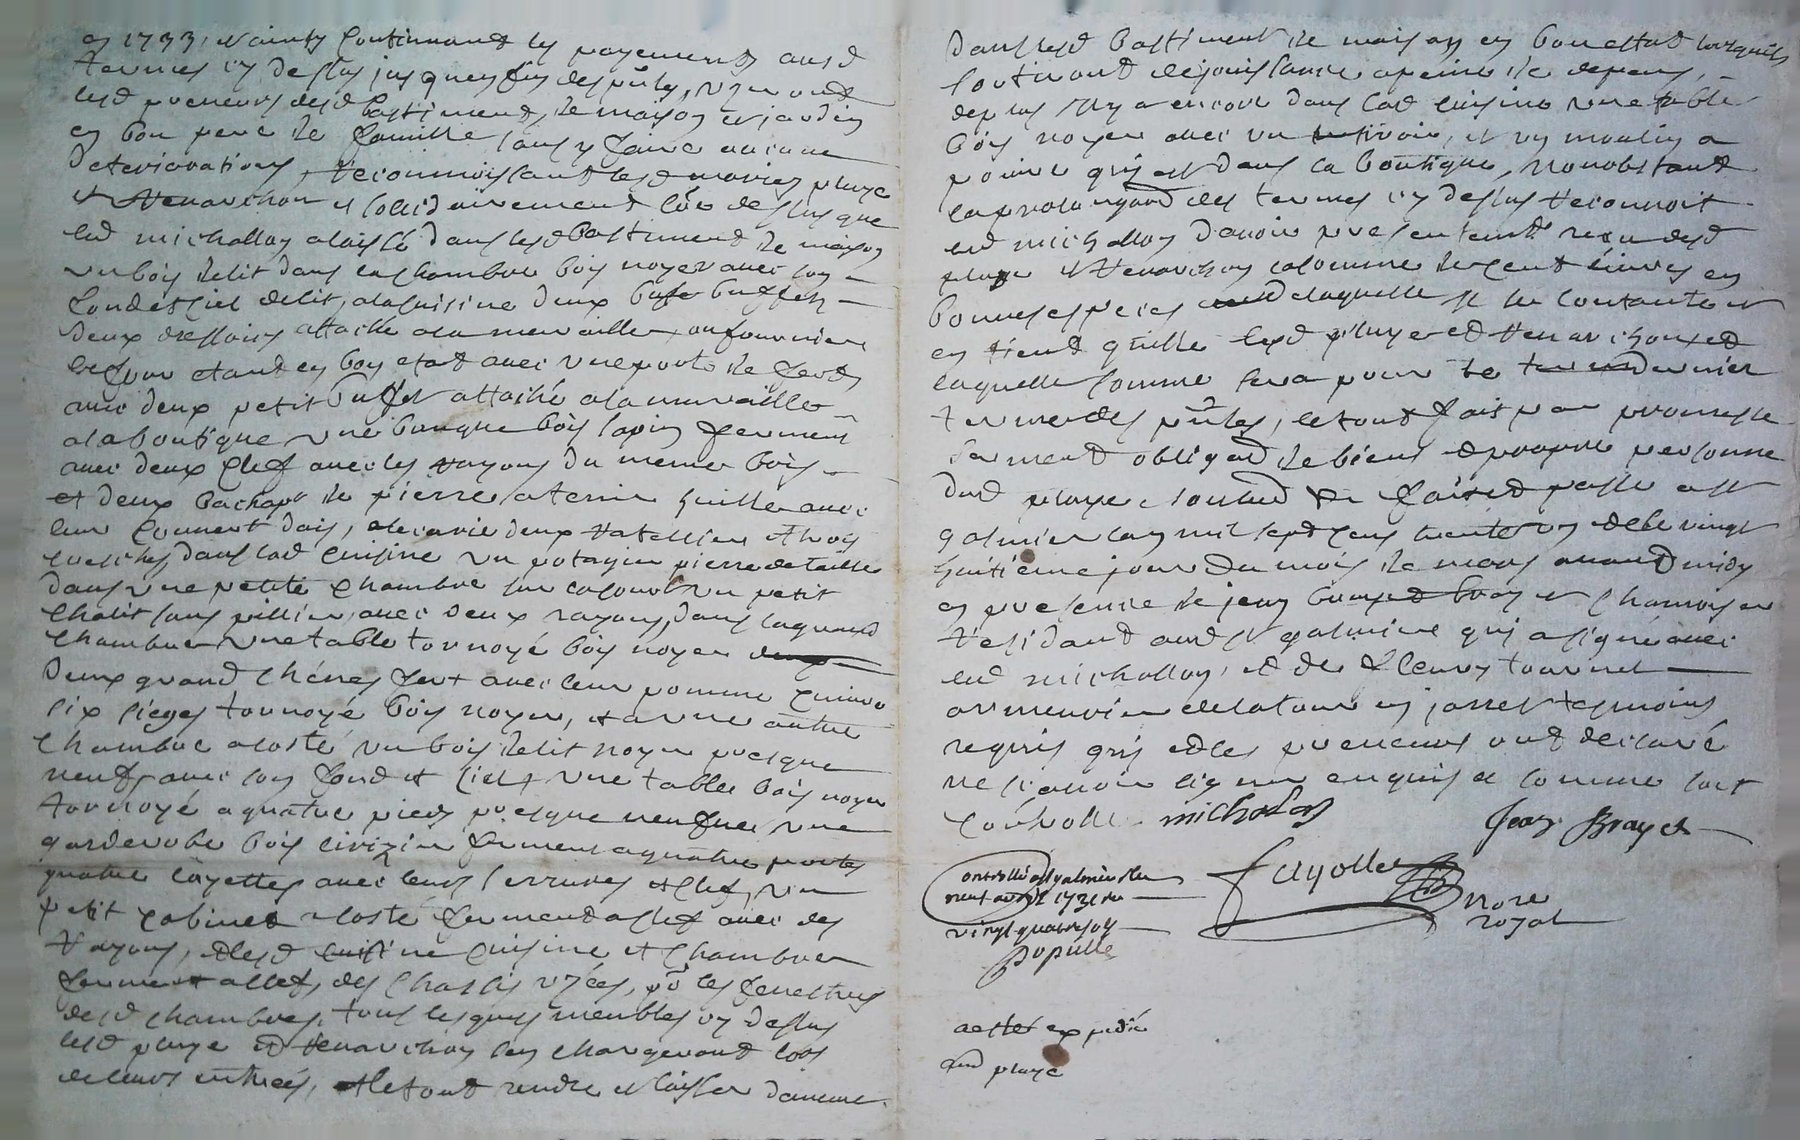 en 1733, & ainsy continuand les payements aud
termes cy dessus jusques fin des pntes, useront
lesd preneurs desd bastiment de maison et jardin
en bon pere de famille sans y faire aucune
deteriorations, reconnoissant lesd mariez playe
et Henarchon et sollidairement que dessus que
led michallon a laissé dans lesd bastiment de maison
un bois de lit dans la chambre bois noyer avec son
fond et ciel de lit, a la cuisine deux buffets
deux dressoirs attaché a la muraille
le four etant en bon etat avec une porte de fert
avec deux petit buffet attaché a la muraille
a la boutique une banque bois sapin fermant
avec deux clef avec les rayons du meme bois
et deux bachats de pierre a tenir huille avec
leur couvert dais, a lecurie deux rattellier et trois
creches dans lad cuisine un potagier pierre de taille
dans une petite chambre un petit
chalit sans pillier avec deux rayons, dans la grand
chambre une table tornoyé bois noyer
deux grand chenes fert avec leur pomme cuivre
six sieges tornoyé bois noyer, et a une autre
chambre a costé un bois de lit noyer presque
neuf avec son fond et ciel, une table bois noyer
tornoyé a quatre pieds presque neufve une
garderobe bois cirizier fermant a quatre portes
quatre layettes avec leurs serrures et clef, un
petit cabinet a costé fermend a clef avec des
rayons, et lesd cuisine et chambres
ferment a clef, des chassis uzées, pr les fenestres
desd chambres, tous lesquels meubles cy dessus
lesd playe et Henarchon sen chargeront lors
de leurs entrées, et le tout rendre et laisser dameme
dans lesd bastiment de maison en bon estat lorsquils
sortiront de jouissance a peine de depens,
de plus il y a encore dans lad cuisine une table
bois noyer avec un tiroir, et un moulin a
poivre qui est dans la boutique, nonobstant
la prolongaon des termes cy dessus reconnoit
led michallon davoir presentement receu desd
playe et Henarchon la somme de cent livres en
bonnes especes de laquelle il se contante et
en tient quitte lesd playe et Henarchon et
laquelle somme sera pour le dernier
terme des pntes, le tout fait par promesse
serment obligaon de biens et propre personne
dud playe fait et passé a St
galmier lan mil sept cens trente un et le vingt
huitieme jour du mois de mars avand midy
en presence de jean brayet chamoiseur
residant aud St galmier qui a signé avec
led michallon, et de fleury tournel
armeurier de la tour en jarret tesmoins
requis qui et les preneurs ont declaré
ne scavoir signer enquis et sommé soit
controllé michalon
Jean Brayet
ontrollé a St galmier le
neuf avril 1731 re
vingt quatre sols
Populle
fayolle
nore
royal
a esté expedié
aud playe